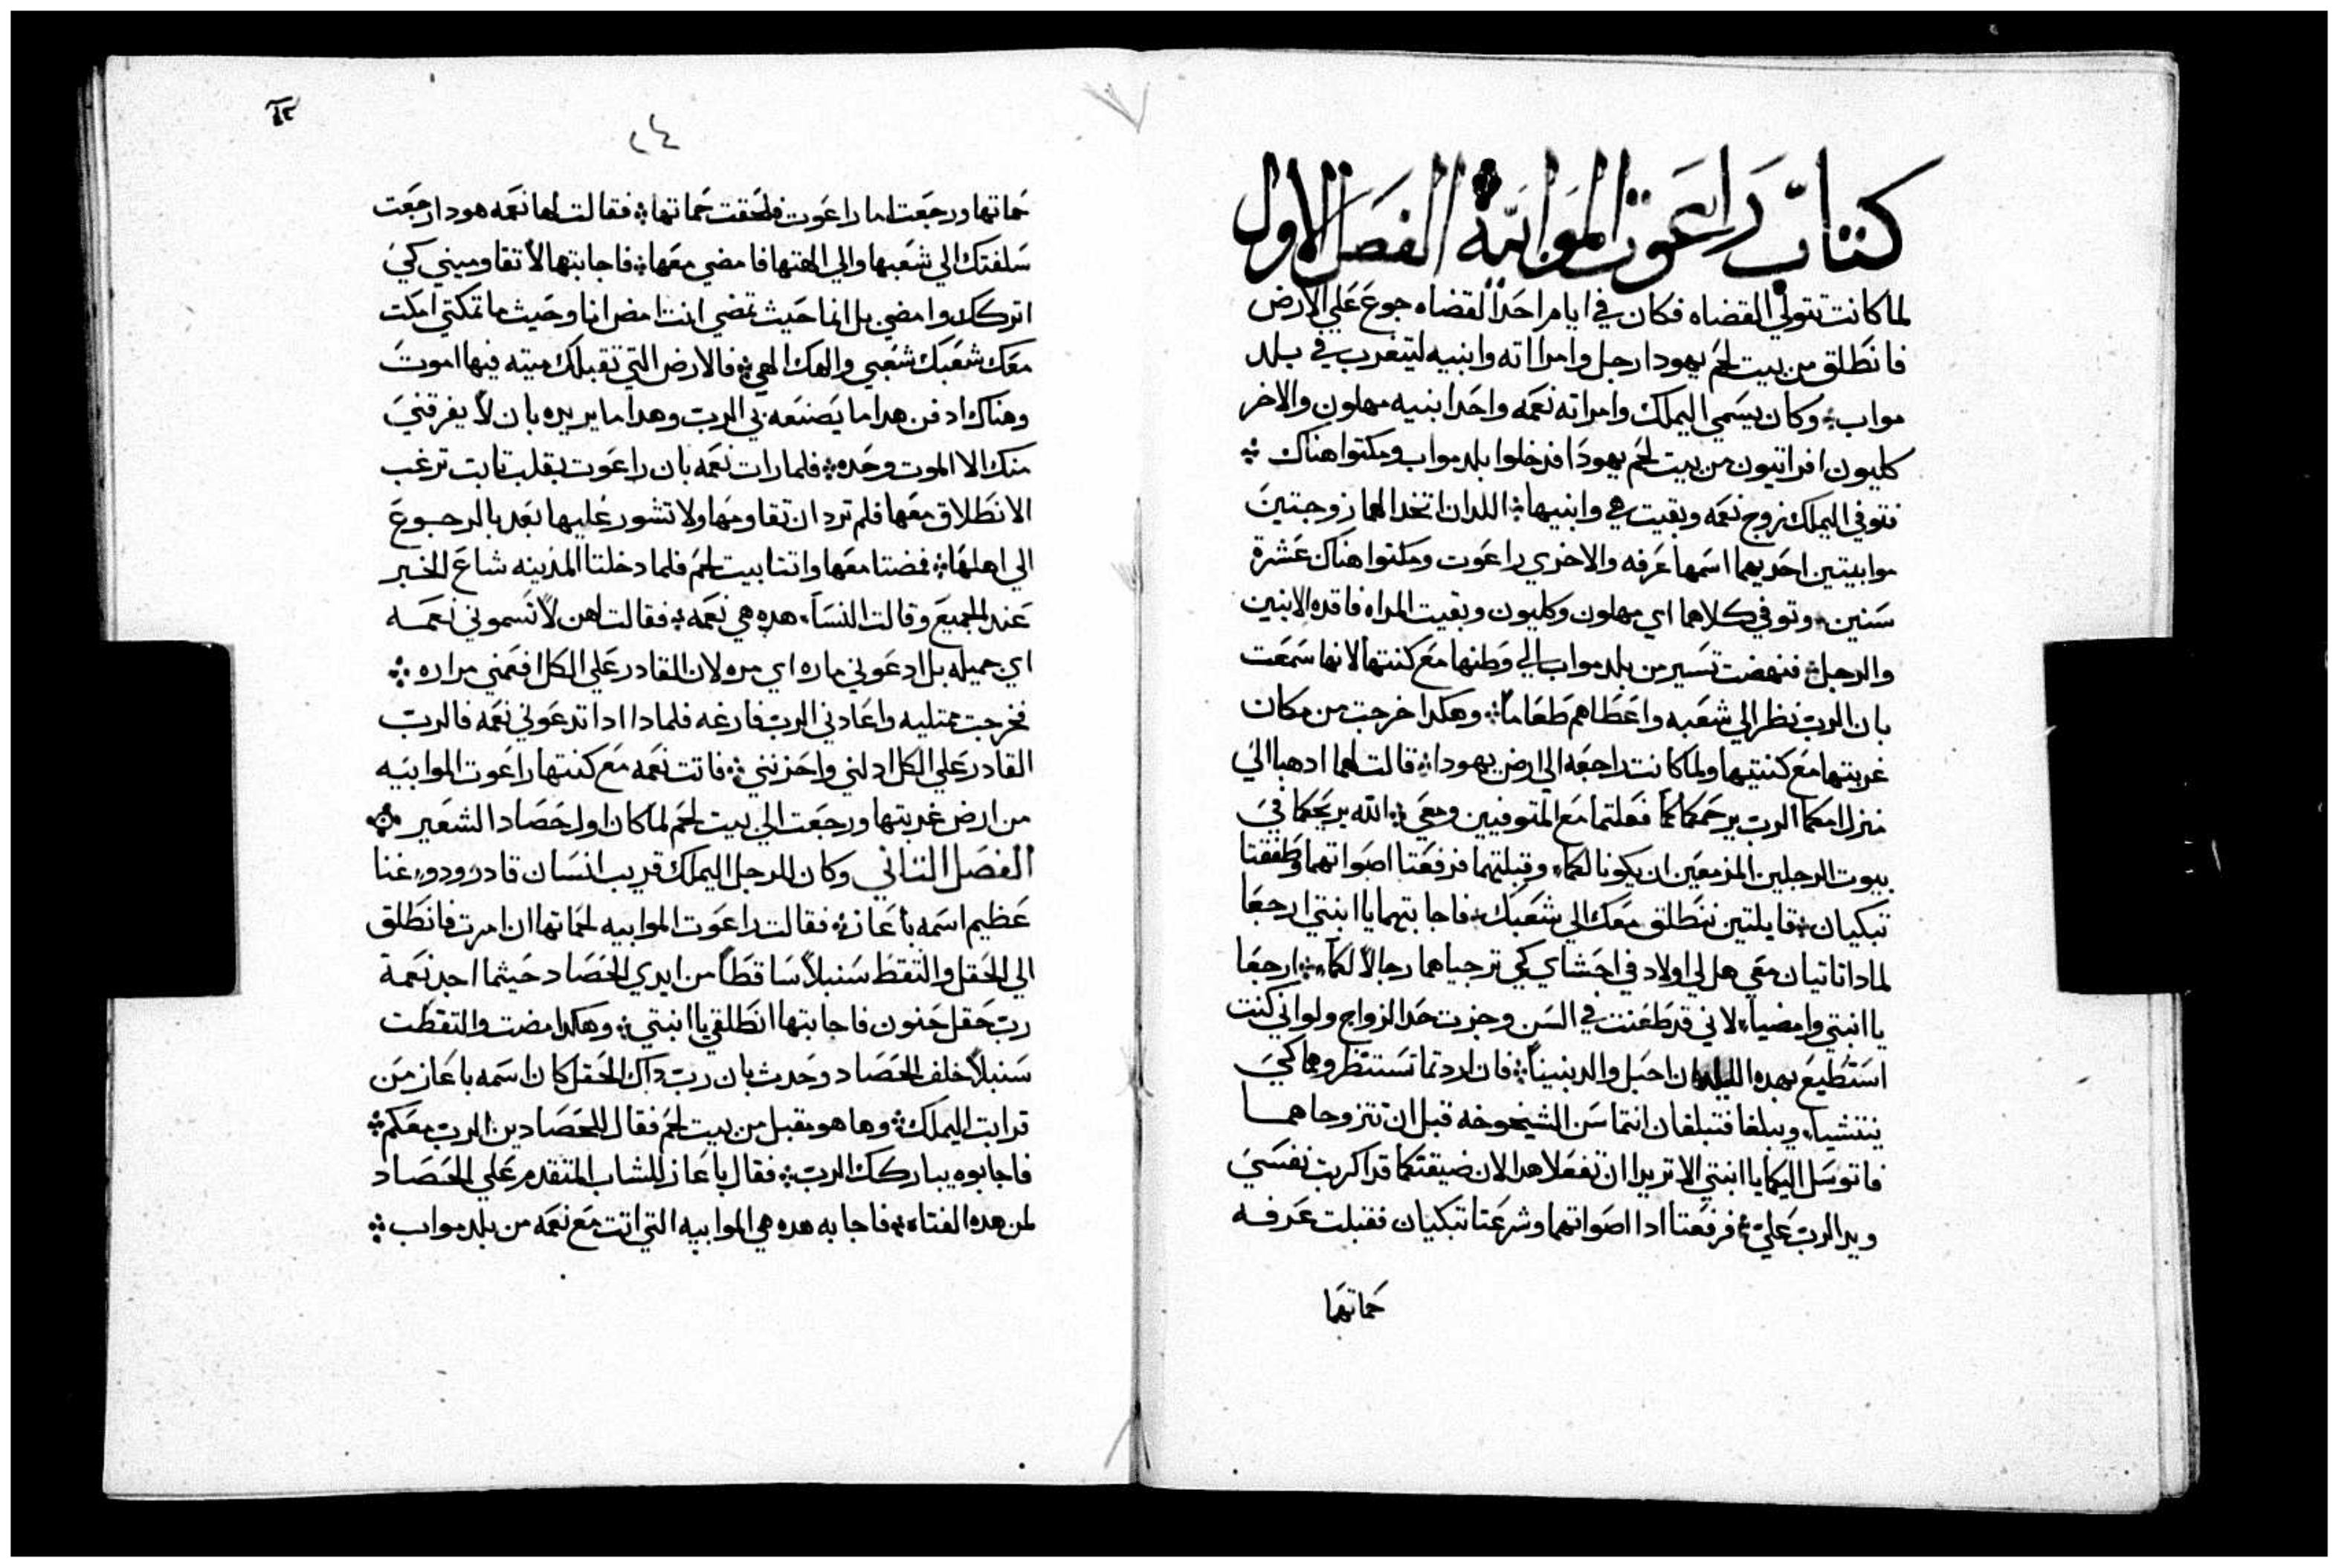 كتاب راعوت الموابيه الفصل الاول
لما كانت تتولي القضاه فكان في ايام احد القضاه جوع علي الارض
فانطلق من بيت لحم يهودا رجل وامراته وابنيه ليتغرب في بلد
مواب ؛ وكان يسمي اليملك وامراته نعمه واحد ابنيه مهلون والاخر
كليون افراتيون من بيت لحم يهودا فدخلوا بلد مواب ومكتوا هناك ؛
فتوفي اليملك زوج نعمه وبقيت هي وابنيها ؛ اللدان اتخدا لهما زوجتين
موابيتين احديهما اسمها عرفه والاخري راعوت ومكتوا هناك عشرة
سنين ؛ وتوفي كلاهما اي مهلون وكليون وبقيت المراه فاقده الابنين
والرجل ؛ فنهضت تسير من بلد مواب الي وطنها مع كنتها لانها سمعت
بان الرب نظر الي شعبه واعطاهم طعاماً ؛ وهكدا خرجت من مكان
غربتها مع كنتيها ولما كانت راجعه الي ارض يهودا ؛ قالت لهما ادهبا الي
منزل امكما الرب يرحمكما كما فعلتما مع المتوفيين ومعي ؛ الله يريحكما في
بيوت الرجلين المزمعين ان يكونا لكما ؛ وقبلتهما فرفعتا اصواتهما وطفقتا
تبكيان ؛ قايلتين ننطلق معك الي شعبك ؛ فاجابتهما يا ابنتي ارجعا
لمادا تاتيان معي هل لي اولاد في احشاي كي ترجياهما رجالاً لكما ؛ ارجعا
يا ابنتي وامضيا ؛ لاني قد طعنت في السن وجزت حد الزواج ولو اني كنت
استطيع بهده الليله ان احبل والد بنيناً ؛ فان اردتما تستنظروهما كي
ينتشيا ؛ ويبلغا فتبلغان انتما سن الشيخوخه قبل ان تتزوجاهما
فاتوسل اليكما يا ابنتي الا تريدا ان تفعلا هدا لان ضيقتكما قد اكربت نفسي
ويد الرب علي ؛ فرفعتا ادا اصواتهما وشرعتا تبكيان فقبلت عرفه
حماتها
٢٤
حماتها ورجعت اما راعوت فلحقت حماتها ؛ فقالت لها نعمه هودا رجعت
سلفتك الي شعبها والي الهتها فامضي معها ؛ فاجابتها لا تقاوميني كي
اتركك وامضي بل انما حيث تمضي انت امض انا وحيث ما تمكتي امكت
معك شعبك شعبي والهك الهي ؛ فالارض التي تقبلك ميته فيها اموت
وهناك ادفن هدا ما يصنعه بي الرب وهدا ما يريده بان لا يفرقني
منك الا الموت وحده ؛ فلما رات نعمه بان راعوت بقلب تابت ترغب
الانطلاق معها فلم ترد ان تقاومها ولا تشور عليها بعد بالرجوع
الي اهلها ؛ فمضتا معها واتتا بيت لحم فلما دخلتا المدينه شاع الخبر
عند الجميع وقالت النسا ؛ هده هي نعمه ؛ فقالت لهن لا تسموني نعمه
اي جميله بل ادعوني ماره اي مره لان القادر علي الكل افعمني مراره ؛
فخرجت ممتليه واعادني الرب فارغه فلمادا ادا تدعوني نعمه فالرب
القادر علي الكل ادلني واحزنني ؛ فاتت نعمه مع كنتها راعوت الموابيه
من ارض غربتها ورجعت الي بيت لحم لما كان اول حصاد الشعير ؛
الفصل التاني وكان للرجل اليملك قريب انسان قادر ودو غنا
عظيم اسمه باعاز ؛ فقالت راعوت الموابيه لحماتها ان امرت فانطلق
الي الحقل والتقط سنبلاً ساقطاً من ايدي الحصاد حيثما اجد نعمة
رب حقل حنون فاجابتها انطلقي يا ابنتي ؛ وهكدا مضت والتقطت
سنبلاً خلف الحصاد وحدث بان رب داك الحقل كان اسمه باعاز من
قرابت اليملك ؛ وها هو مقبل من بيت لحم فقال للحصادين الرب معكم ؛
فاجابوه يباركك الرب ؛ فقال باعاز للشاب المتقدم علي الحصاد
لمن هده الفتاه ؛ فاجابه هده هي الموابيه التي اتت مع نعمه من بلد مواب ؛